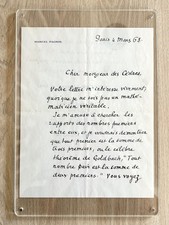 Paris 4 Mars 68.
Cher monsieur des Cèdres,
Votre lettre m'intéresse vivement,
quoi que je ne sois pas un mathé-
maticien véritable.
Je m'amuse à chercher les
rapports des nombres premiers
entre eux, et je voudrais
que tout premier est la somme de
trois premiers, ou le célèbre
théorème de Goldbach, "Tout
nombre pair est la somme de
deux premiers" Vous voyez